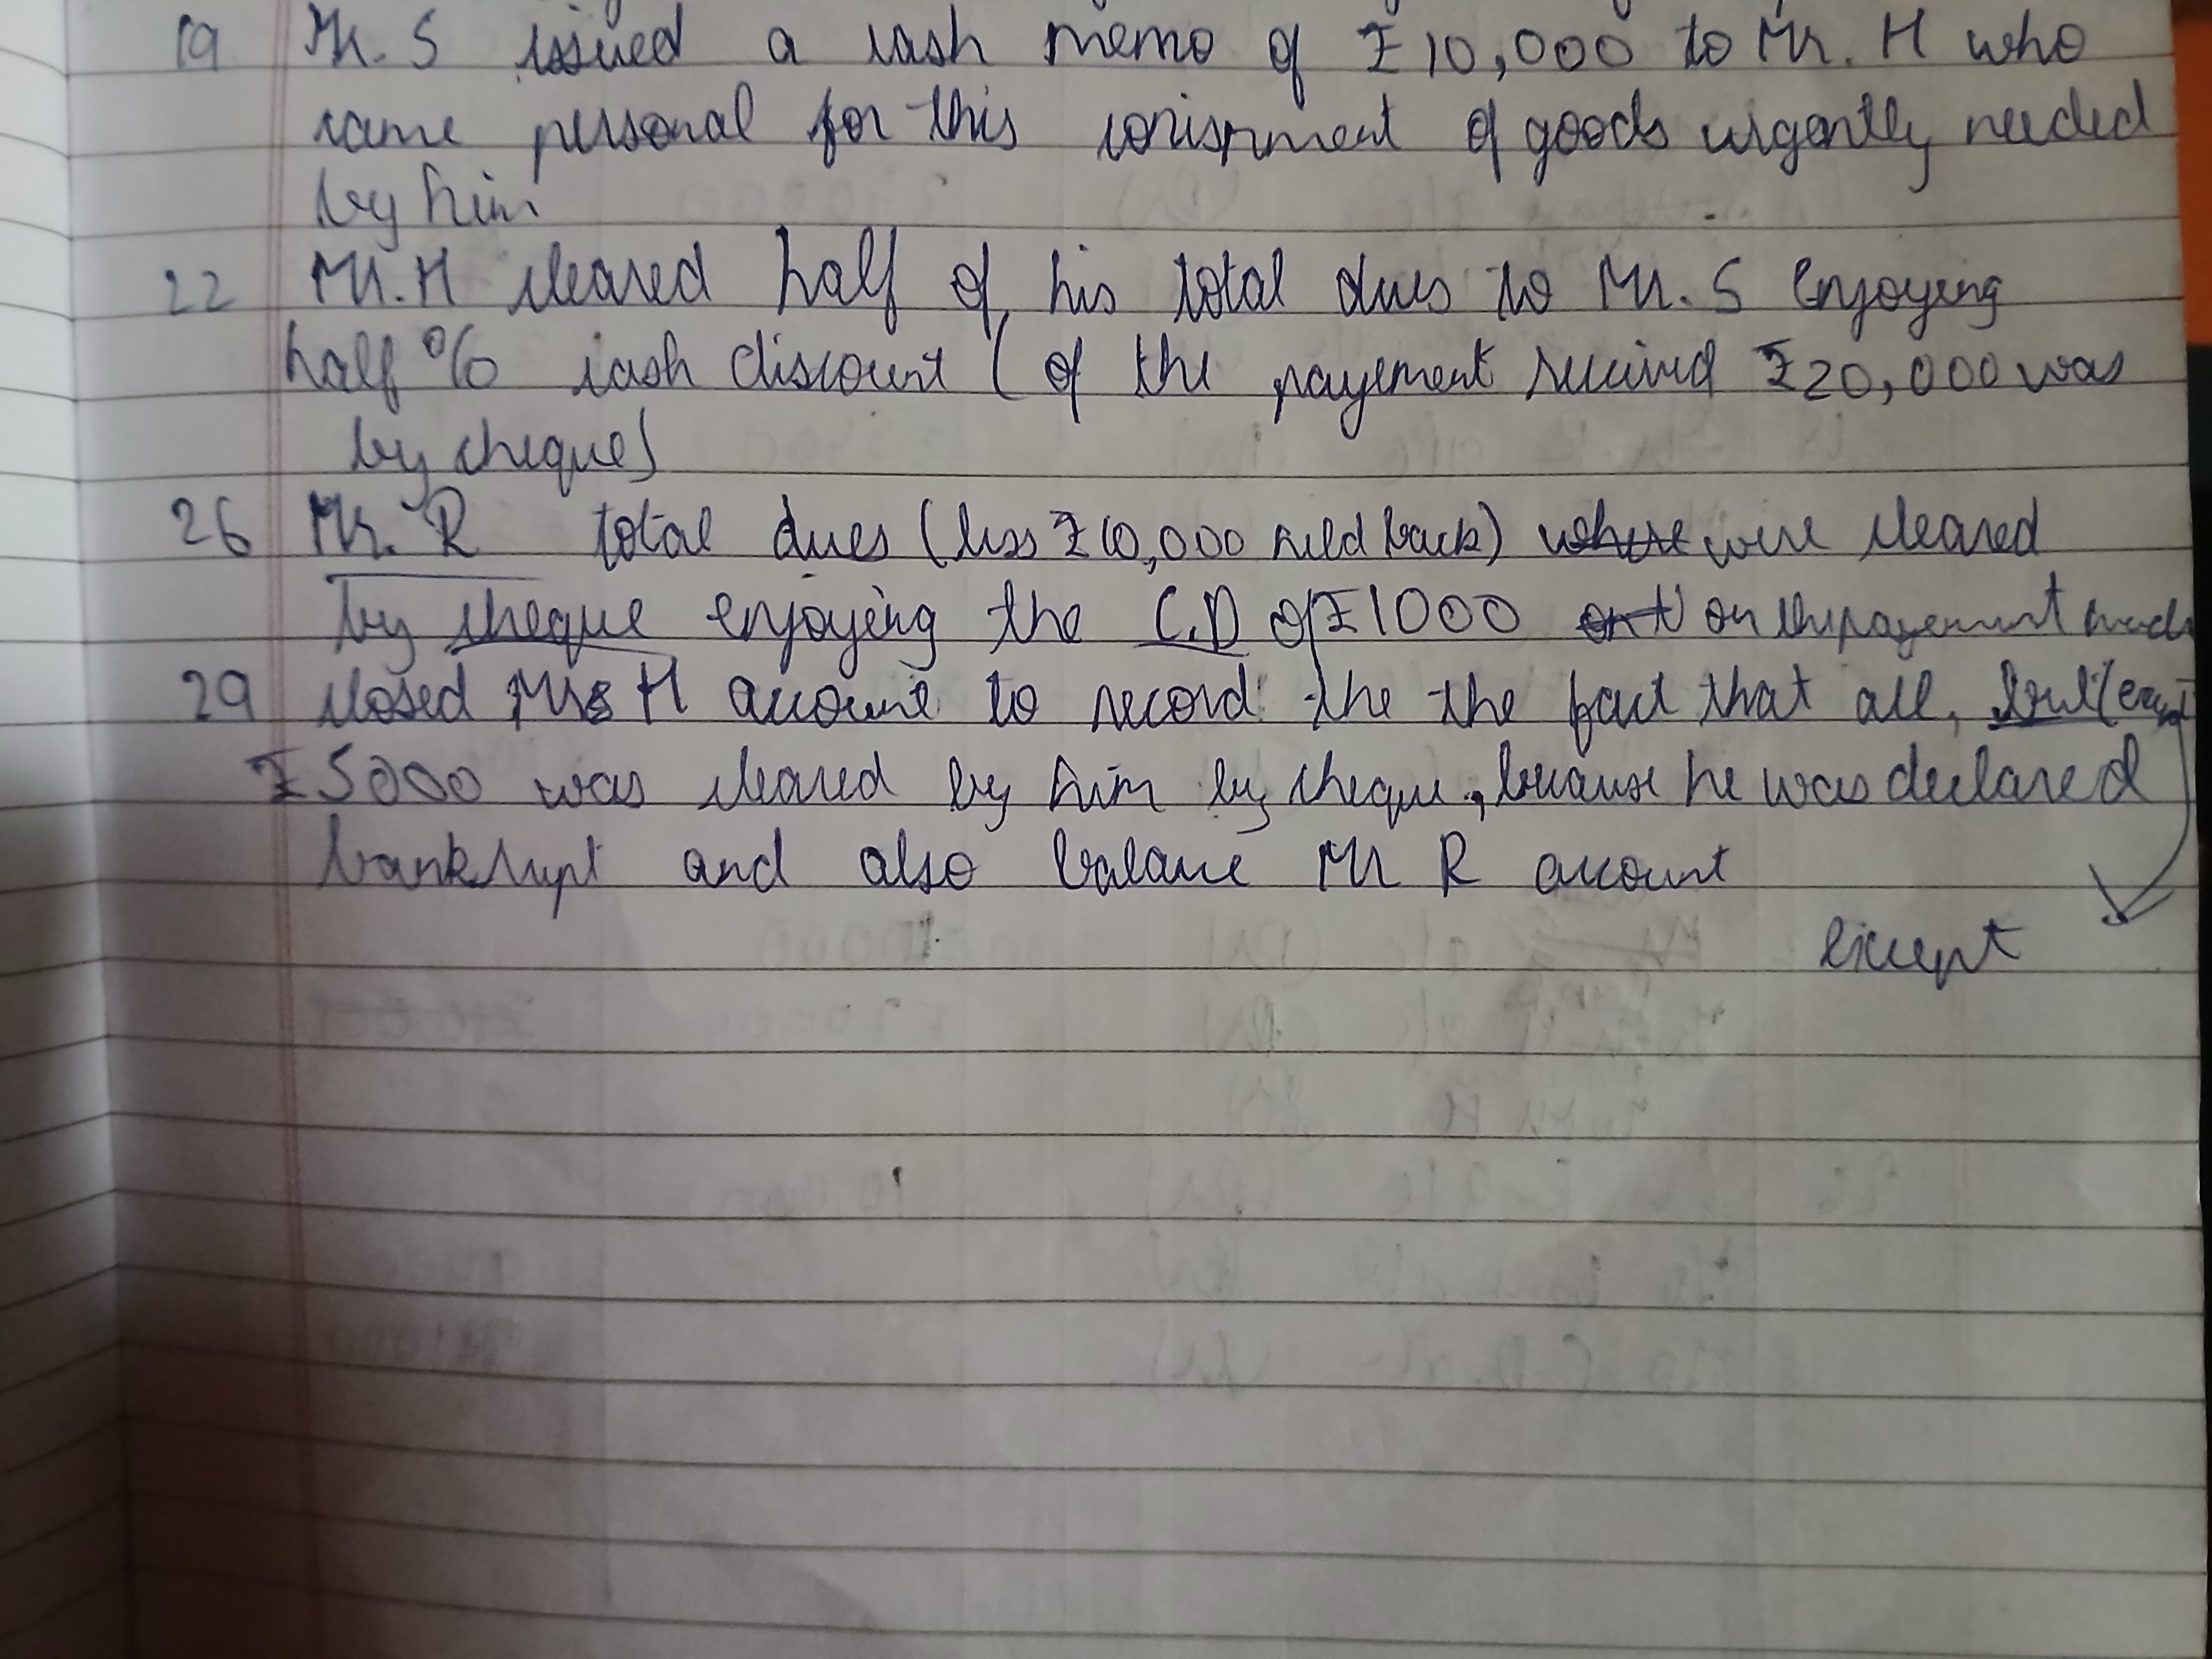 19 Mr. S issued a cash memo of ₹10,000 to Mr. H who
came personal for this of goods urgently needed
by him
22 Mr. H cleared half of his total dues to Mr. S enjoying
half % cash discount ( of the payement received ₹20,000 was
by cheque)
26 Mr. R total dues (less ₹10,000 held back) where were cleared
by cheque enjoying the C.D of ₹1000 on
29 closed Mrs H account to record the the fact that all,
₹5000 was cleared by him by cheque, because he was declared
bankrupt and also balance Mr R account
except